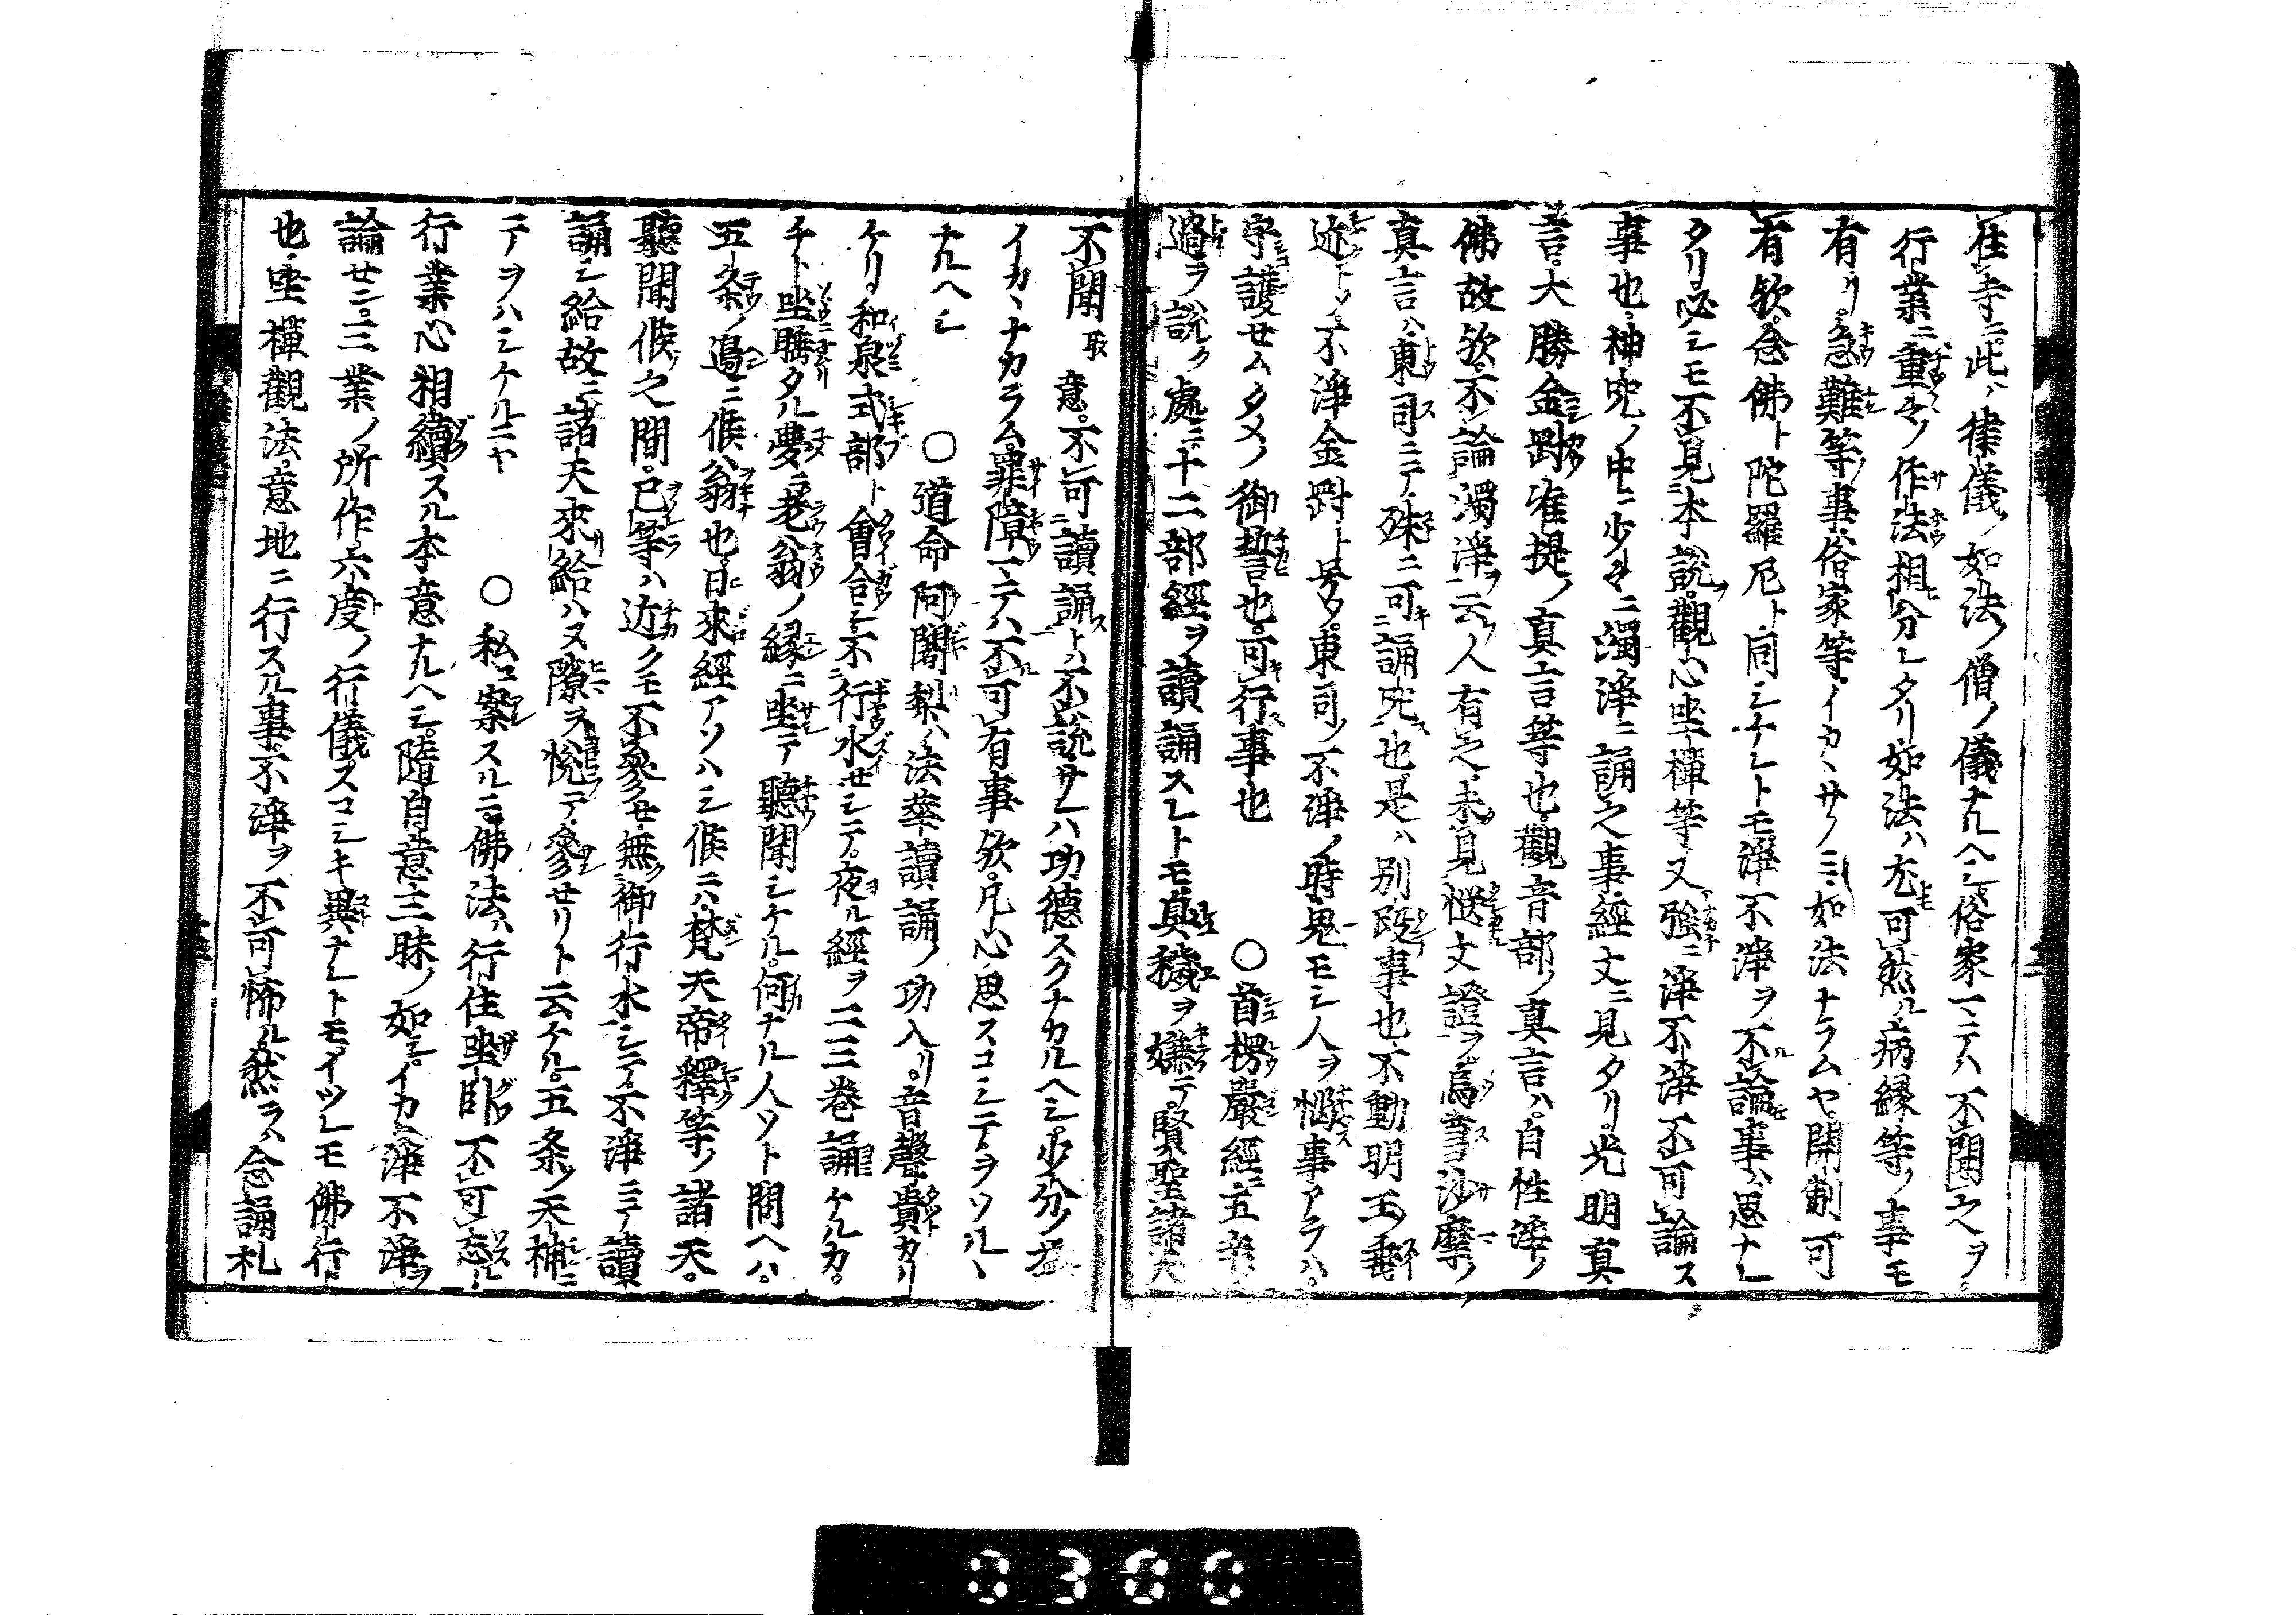 在寺ニ此ハ律儀ノ如法ノ僧ノ儀ナルヘシ俗家ニテハ不聞之ヲ
行業ニ重々ノ作法相分レタリ如法ハ尤可然ル病縁等ノ事モ
有リ急難等ノ事俗家等イカヽサノミ如法ナラムヤ開制可
有欤念佛ト陀羅尼ト同シナレトモ浄不浄ヲ不論事ハ思ナレ
タリ必シモ不見本説ヲ觀心坐禅等又強ニ浄不浄不可論ス
事也神呪ノ中ニ少々ニ濁浄ニ誦之事經文ニ見タリ光明真
言大勝金剛准提ノ真言等也觀音部ノ真言ハ自性浄ノ
佛故欤不論濁浄ヲ云人有之未見慥文證ヲ烏芻沙摩ノ
真言ハ東司ニテ殊ニ可誦呪也是ハ別段事也不動明王ノ垂
迹トソ不浄金剛ト号タ東司ノ不浄ノ時鬼モシ人ヲ惱事アラハ
守護セムタメノ御誓言也可行事也 ○首楞嚴經ニ五辛ノ
過ヲ説ク處ニ十二部經ヲ讀誦スレトモ臭穢ヲ嫌テ賢聖諸天
不聞取意不可讀誦トハ不説サレハ功德スクナカルヘシ少分ノ益
イカヽナカラム罪障マテハ不可有事欤凡心思スコシテヲソルヽ
ナルヘシ ○道命阿闍梨ハ法華讀誦ノ功入リ音聲貴カリ
ケリ和泉式部ト會合シ不行水セシテ夜ル經ヲ二三巻誦ケルカ
チト坐睡タル夢ニ老翁ノ縁ニ坐テ聽聞シケル何ナル人ソト問ヘハ
五条ノ邊ニ候翁也日來經アソハシ候ニハ梵天帝釋等ノ諸天
聽聞候之間己等ハ近クモ不參せ無御行水シテ不浄ニテ讀
誦シ給故ニ諸天來給ハヌ隙ヲ悦テ參せリト云ケル五条ノ天神ニ
テヲハシケルニヤ ○私ニ案スルニ佛法ハ行住坐臥不可忘ル
行業心相續スル本意ナルヘシ隨自意三昧ノ如シイカヽ浄不浄ヲ
論せン三業ノ所作六度ノ行儀スコシキ異ナレトモイツレモ佛行
也坐禪觀法意地ニ行スル事不浄ヲ不可怖ル然ラハ念誦札